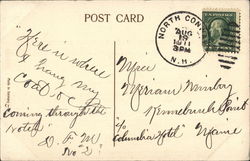 POST CARD
NORTH CON
AUG
1911
3PM
N.H.
"Here is where
I hang my
coat on
Coming through the
Notch"
D. F. M
No "2"
Miss
Miriam
Kennebunk
c/o
Columbia Hotel Maine